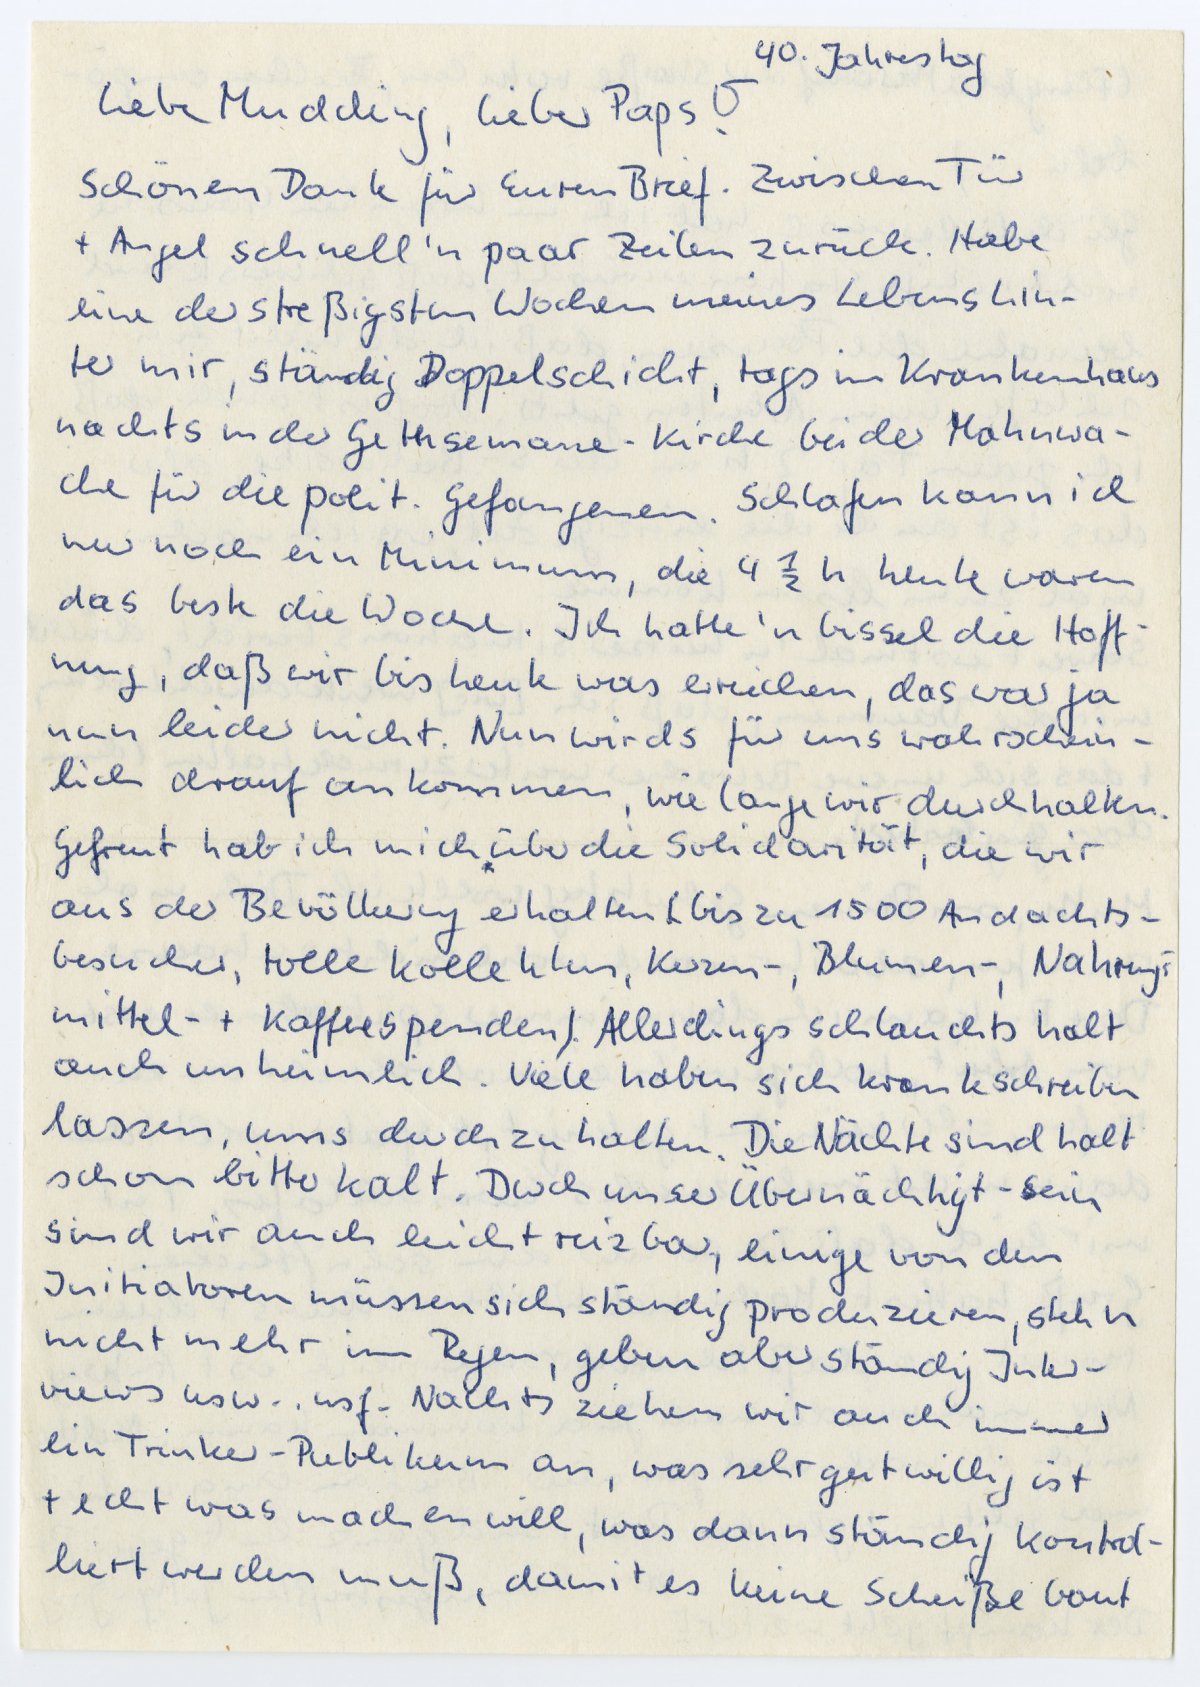 40. Jahrestag
Liebe Mudding, lieber Paps!
Schönen Dank für Euren Brief. Zwischen Tür
+ Angel schnell 'n paar Zeilen zurück. Habe
eine der streßigsten Wochen meines Lebens hin-
ter mir, ständig Doppelschicht, tags im Krankenhaus
nachts in der Gethsemane-Kirche bei der Mahnwa-
che für die polit. Gefangenen. Schlafen kann ich
nur noch ein Minimum, die 4 1/2 h heute waren
das beste die Woche. Ich hatte 'n bissel die Hoff-
nung, daß wir bis heute was erreichen, das war ja
nun leider nicht. Nun wirds für uns wahrschein-
lich drauf ankommen, wie lange wir durchhalten.
Gefreut hab ich mich über die Solidarität, die wir
aus der Bevölkerung erhalten (bis zu 1500 Andachts-
besucher, tolle Kollekten, Kerzen-, Blumen-, Nahrungs-
mittel- + Kaffeespenden). Allerdings schlauchts halt
auch unheimlich. Viele haben sich krankschreiben
lassen, ums durchzuhalten. Die Nächte sind halt
schon bitter kalt. Durch unser Übernächtigt-sein
sind wir auch leicht reizbar, einige von den
Initiatoren müssen sich ständig produzieren, stehn
nicht mehr im Regen, geben aber ständig Inter-
views usw.. usf. Nachts ziehen wir auch immer
ein Trinker-Publikum an, was sehr gutwillig ist
+ echt was machen will, was dann ständig kontrol-
liert werden muß, damit es keine Scheiße baut